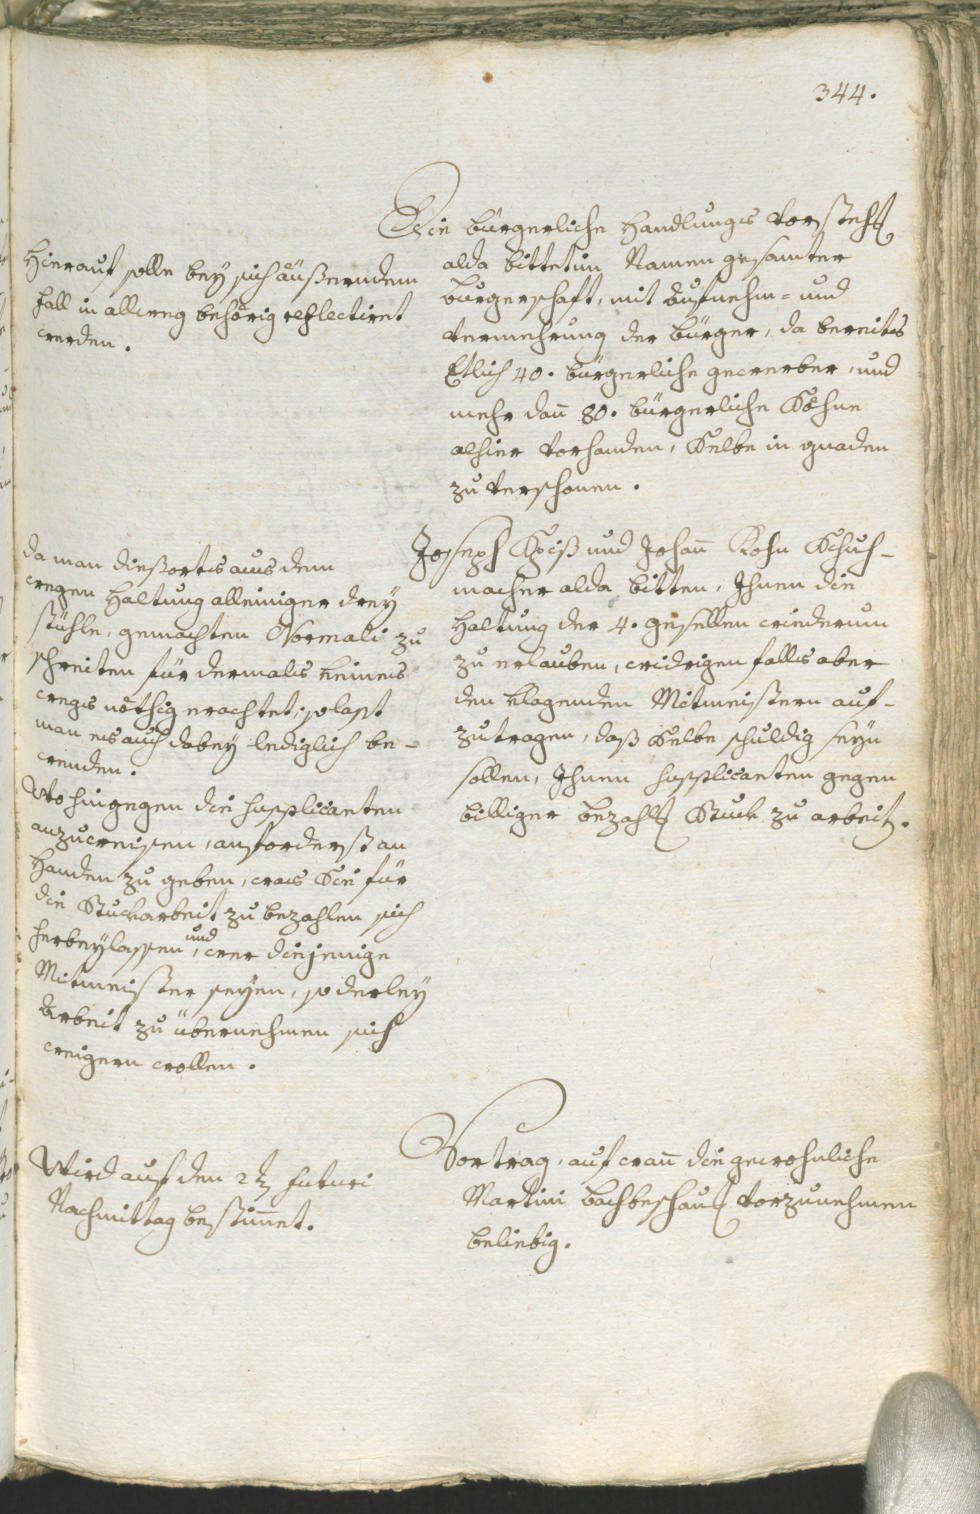 344.
Die bürgerliche Handlungs vorsteh
alda bittet im Namen gesamter
burgerschaft, mit Aufnehm- und
vermehrung der bürger, da bereits
Etlich 40. bürgerliche gewerber, und
mehr dan 80. bürgerliche Söhne
alhier vorhanden, Selbe in gnaden
zu verschonen.
Hierauf solle bey sich äußerndem
fall in allweg behörig reflectiret
werden.
Joseph und Johan Kohn Schuh-
macher alda bitten, Ihnen die
Haltung der 4. gesellen wiederum
zu erlauben, widrigen falls aber
den klagenden Mitmeistern auf-
zutragen, daß Selbe schuldig seyn
sollen, Ihnen Supplicanten gegen
billiger bezahl Stuck zu arbeit.
da man dießorts aus dem
wegen Haltung alleiniger drey
stühle, gemachten Normali zu
schreiten für dermals keines
wegs nöthig erachtet; so last
man es auch dabey lediglich be-
wenden.
Wo hingegen die Supplicanten
anzuweisen, anforderst an
Handen zu geben, was Sie für
die Stuckarbeit zu bezahlen sich
herbeylassen, und wer diejenige
Mitmeister seyen, so derley
Arbeit zu übernehmen sich
weigern wollen.
Vortrag, auf wan die gewohnliche
Martini bachbeschau vorzunehmen
beliebig.
Wird auf den 2t futuri
Nachmittag bestimmet.